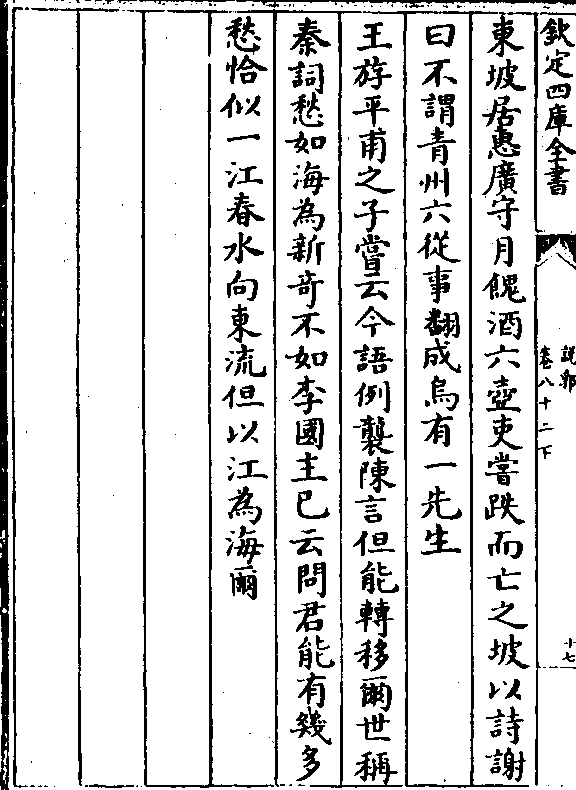 欽定四庫全書
說郛
卷八十二下
十七
東坡居惠廣守月餽酒六壺吏嘗跌而亡之坡以詩謝
曰不謂青州六從事翻成烏有一先生
王斿平甫之子嘗云今語例襲陳言但能轉移爾世稱
秦詞愁如海為新竒不如李國主已云問君能有幾多
愁恰似一江春水向東流但以江為海爾